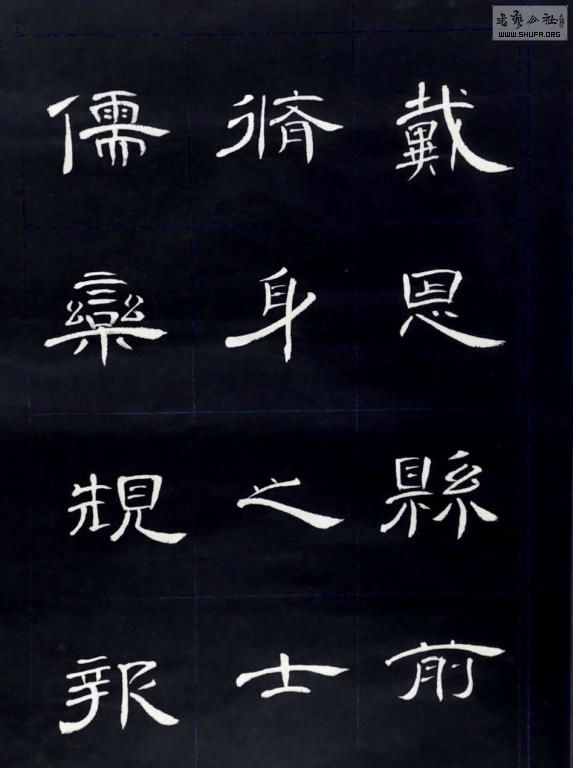 戴恩縣前
脩身之士
儒欒規報
書藝公社
WWW.SHUFA.ORG